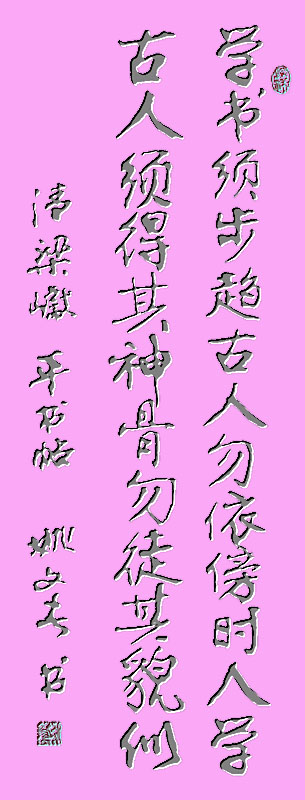 学书须步趋古人勿依傍时人学
古人须得其神骨勿徒其貌似
清梁巘 平书帖 姚文春 书